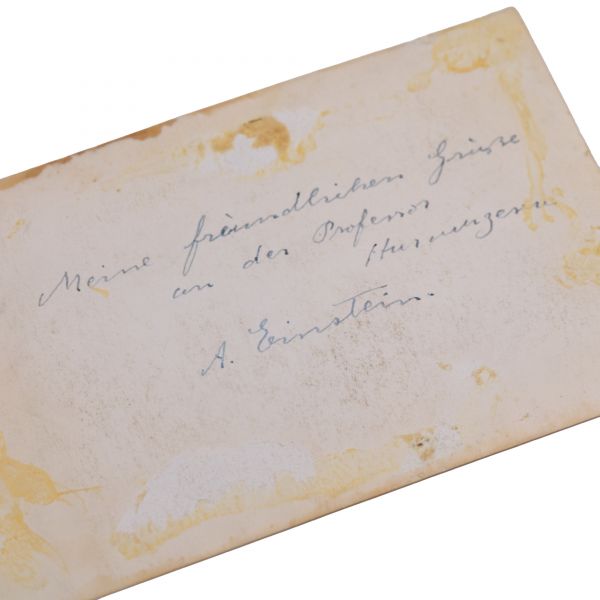 Meine freundlichen Grüsse
an der Professor
A. Einstein.